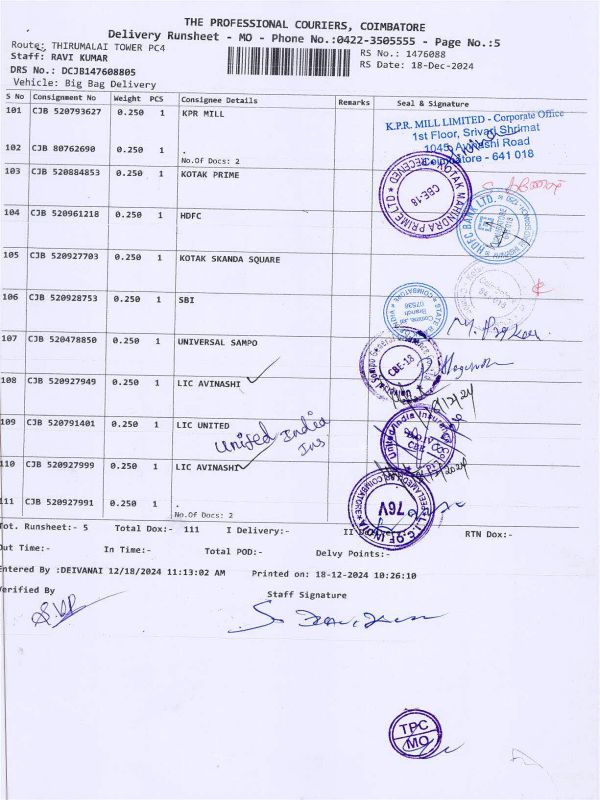 THE PROFESSIONAL COURIERS, COIMBATORE
Delivery Runsheet - MO - Phone No.:0422-3505555 - Page No.:5
Route: THIRUMALAI TOWER PC4
RS No.: 1476088
Staff: RAVI KUMAR
RS Date: 18-Dec-2024
DRS No.: DCJB147608805
Vehicle: Big Bag Delivery
S No Consignment No Weight PCS Consignee Details Remarks Seal & Signature
101 CJB 520793627 0.250 1 KPR MILL
K.P.R. MILL LIMITED - Corporate Office
1st Floor, Srivari Shrimat
1045, Avinashi Road
Coimbatore - 641 018
102 CJB 80762690 0.250 1 .
No.Of Docs: 2
103 CJB 520884853 0.250 1 KOTAK PRIME
KOTAK MAHINDRA PRIME LTD
RECEIVED
CBE-18
104 CJB 520961218 0.250 1 HDFC
HDFC BANK LTD.
105 CJB 520927703 0.250 1 KOTAK SKANDA SQUARE
106 CJB 520928753 0.250 1 SBI
STATE
COIMBATORE
Branch
07536
107 CJB 520478850 0.250 1 UNIVERSAL SAMPO
CBE-18
108 CJB 520927949 0.250 1 LIC AVINASHI
109 CJB 520791401 0.250 1 LIC UNITED
United India
Ins
United India Insurance
110 CJB 520927999 0.250 1 LIC AVINASHI
111 CJB 520927991 0.250 1 .
No.Of Docs: 2
L.I.C. OF INDIA
COIMBATORE
76V
Tot. Runsheet:- 5 Total Dox:- 111 I Delivery:- II RTN Dox:-
Out Time:- In Time:- Total POD:- Delvy Points:-
Entered By :DEIVANAI 12/18/2024 11:13:02 AM Printed on: 18-12-2024 10:26:10
Verified By
Staff Signature
TPC
MO